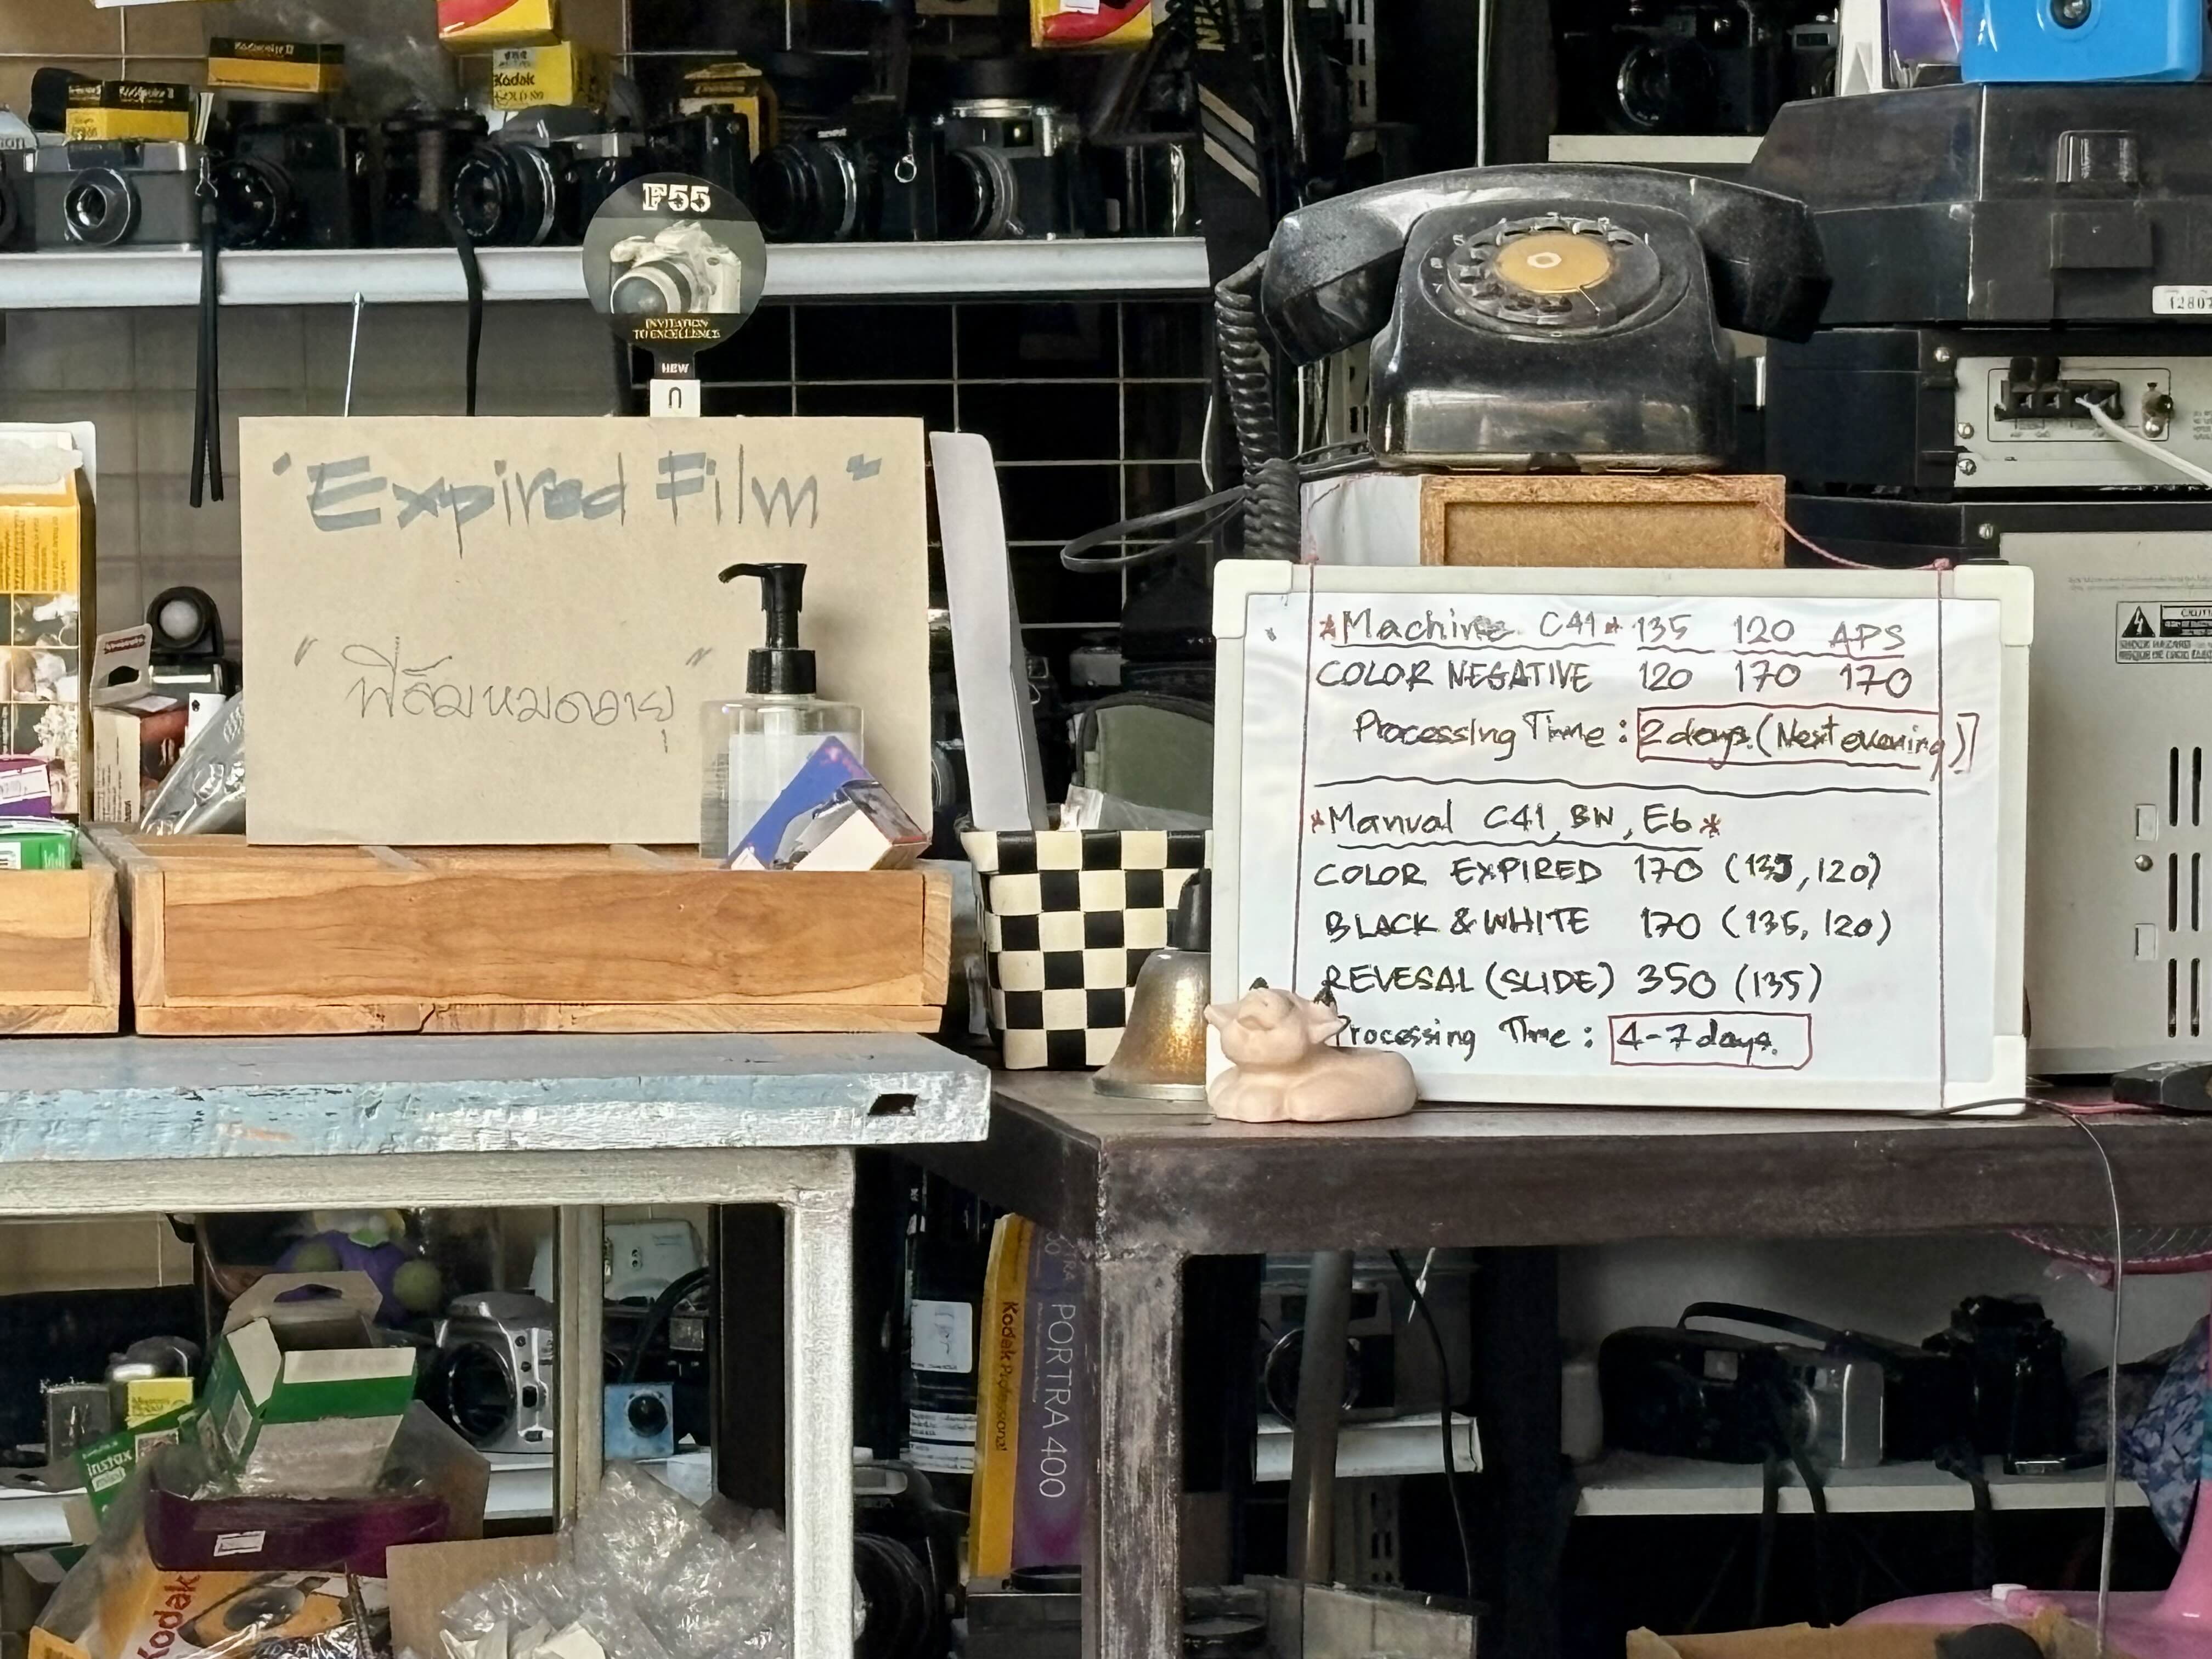 Kodak
F55
INVITATION
TO EXCELLENCE
NEW
"Expired Film"
"ฟิล์มหมดอายุ"
*Machine C41* 135 120 APS
COLOR NEGATIVE 120 170 170
Processing Time : 2 days. (Next evening)
*Manual C41, BW, E6*
COLOR EXPIRED 170 (135, 120)
BLACK & WHITE 170 (135, 120)
REVESAL (SLIDE) 350 (135)
Processing Time : 4-7 days.
Kodak Professional
PORTRA 400
instax
mini
Kodak